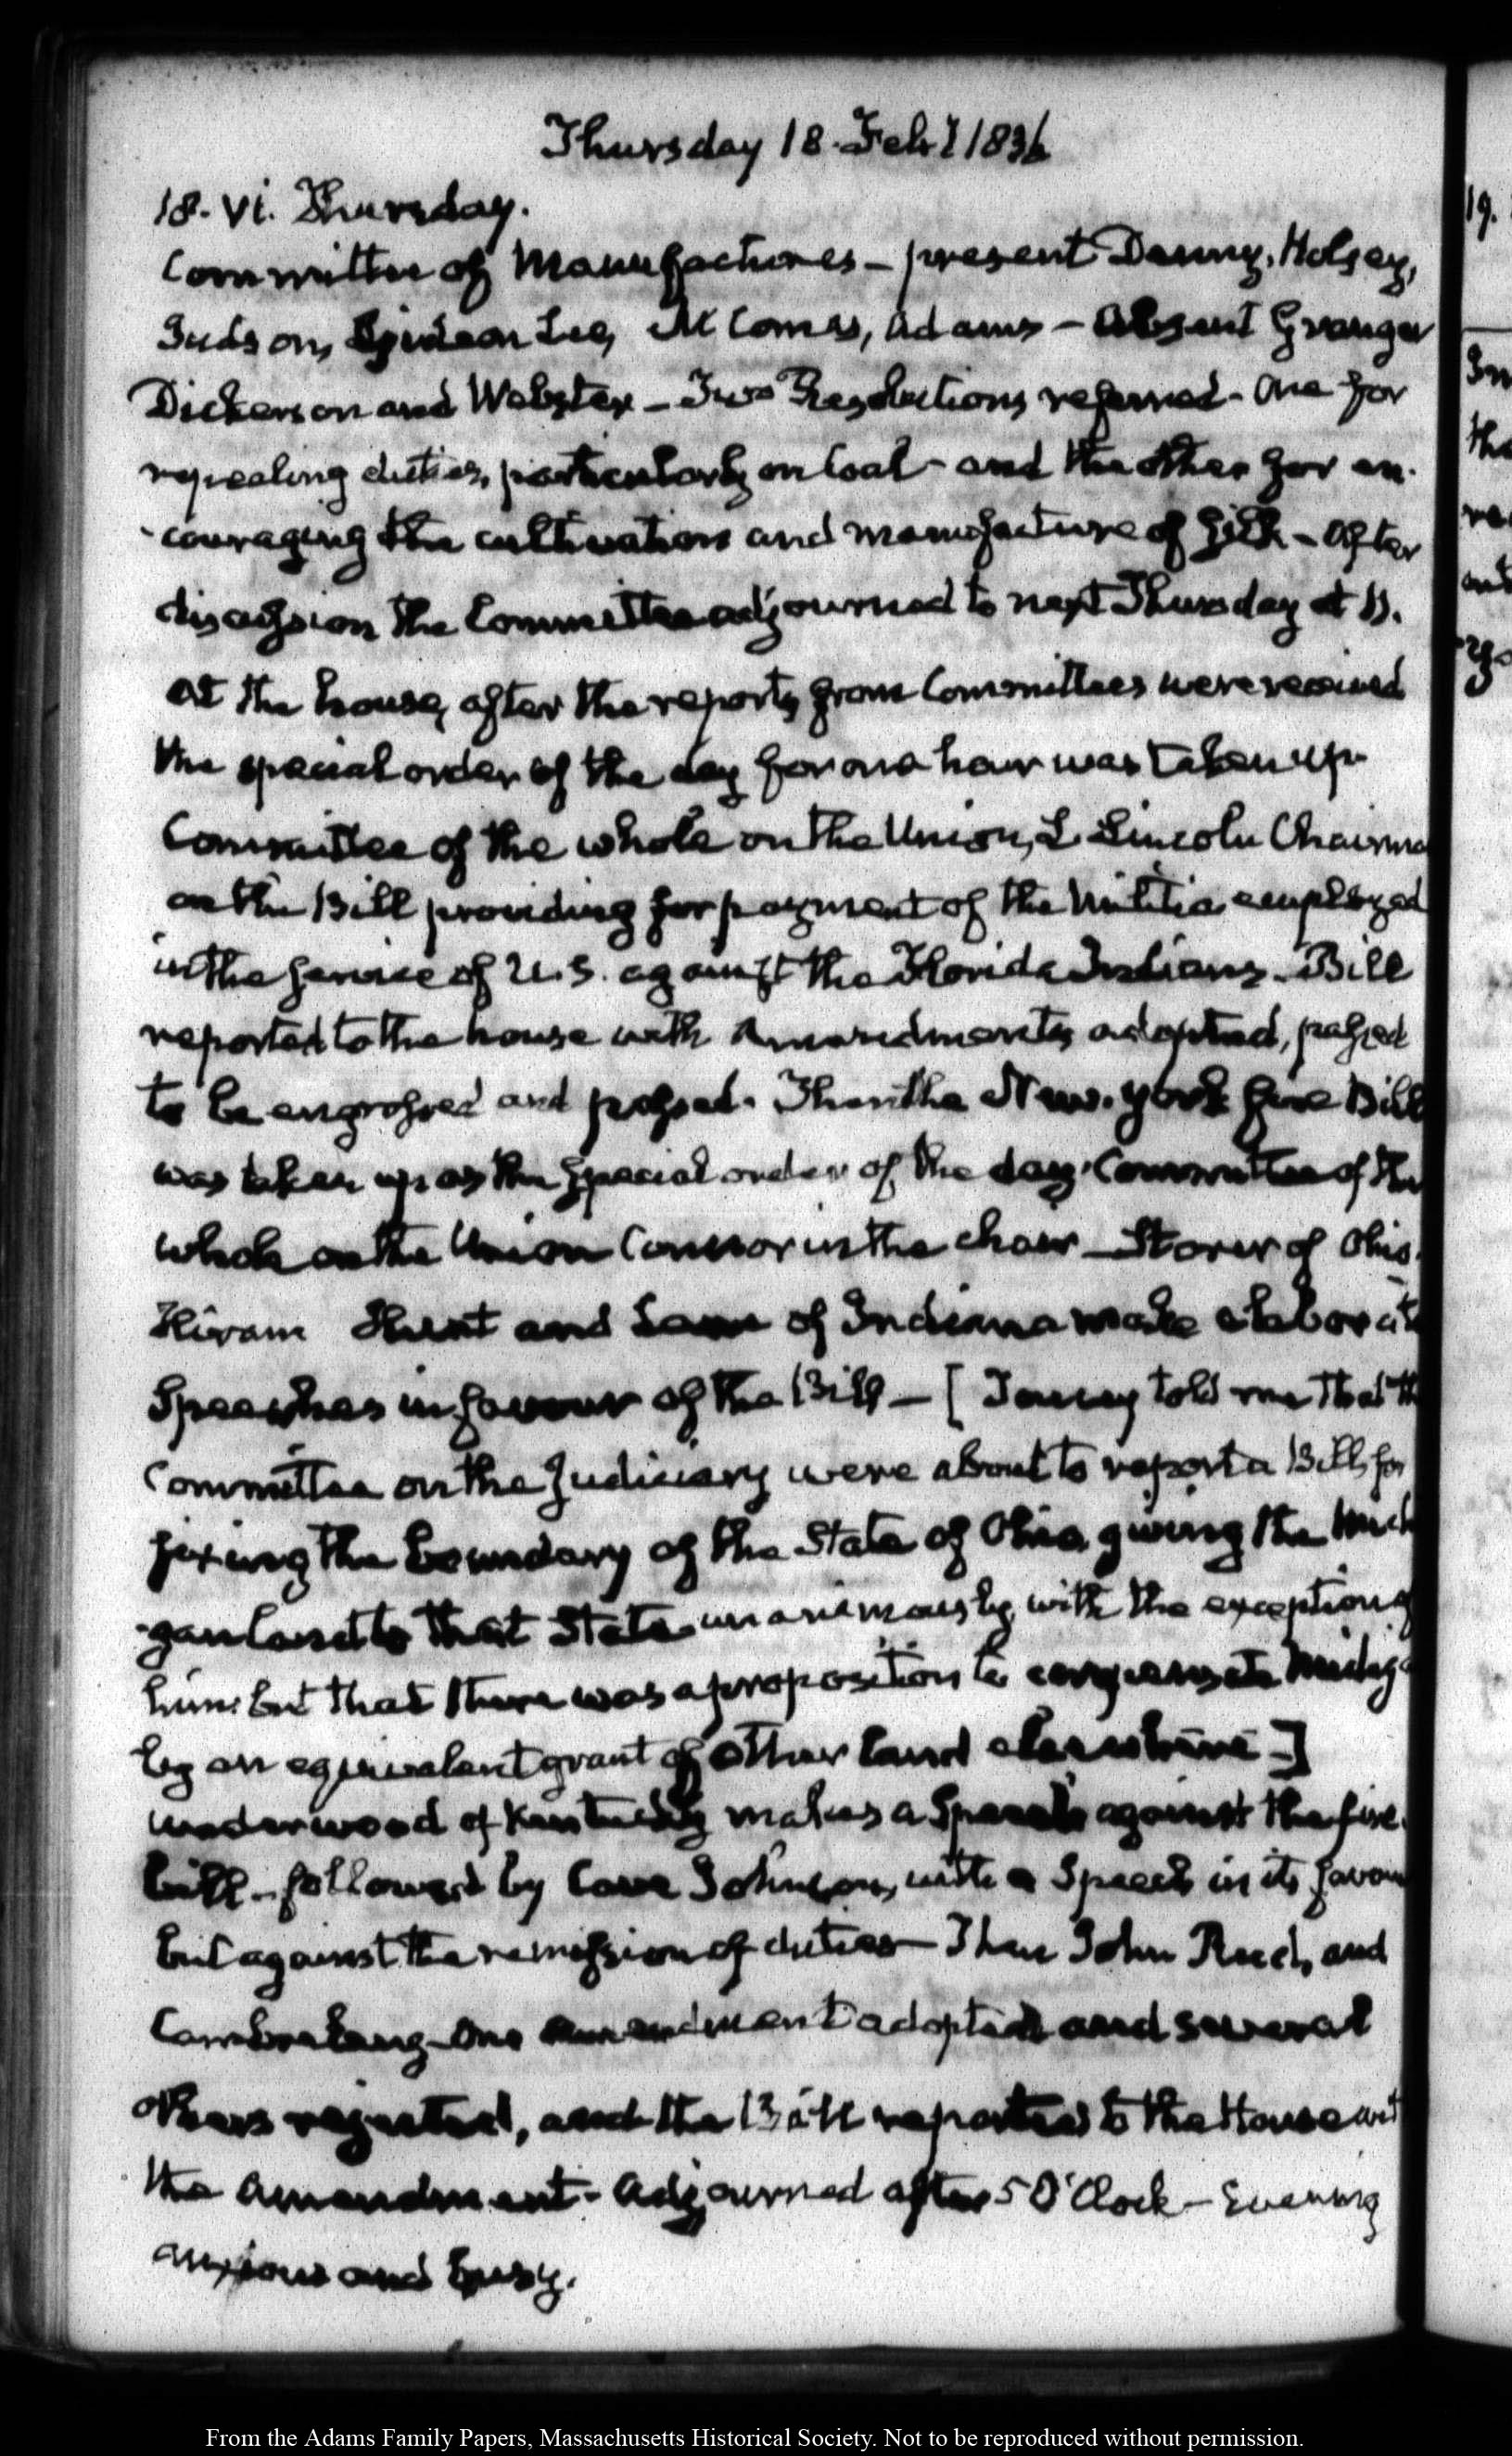 Thursday 18. Feby 1836
18. VI. Thursday.
Committee of Manufactures – present Denny, Holsey,
Judson, Gideon Lee, McComas, Adams – Absent Granger
Dickerson and Webster – Two Resolutions referred – One for
repealing duties, particularly on Coal – and the other for en-
-couraging the cultivation and manufacture of Silk – After
discussion the Committee adjourned to next Thursday at
At the house, after the reports from Committees were received
the special order of the day for one hour was taken up
Committee of the whole on the Union, L. Lincoln Chairma
on the Bill providing for payment of the Militia employed
in the service of U.S. against the Florida Indians – Bill
reported to the house with Amendments, adopted, passed
to be engrossed and passed. Then the New-York fire Bill
was taken up as the special order of the day. Committee of the
whole on the Union Connor in the chair – Storer of Ohio.
Hiram Hunt and Lane of Indiana make elaborate
Speeches in favour of the Bill – [ told me that th
Committee on the Judiciary were about to report a Bill, for
fixing the boundary of the State of Ohio, giving the Mich
-gan land to that State unanimously, with the exception of
him: but that there was a proposition to compensate Michig
by an equivalent grant of other land elsewhere –]
Underwood of Kentucky makes a Speech against the fire
bill – followed by Cave Johnson, with a Speech in its favour
but against the remission of duties – Then John Reed, and
Cambreleng – One Amendment adopted and several
others rejected, and the Bill reported to the House with
the Amendment – Adjourned after 5 O'Clock – Evening
anxious and busy.
19.
th
From the Adams Family Papers, Massachusetts Historical Society. Not to be reproduced without permission.